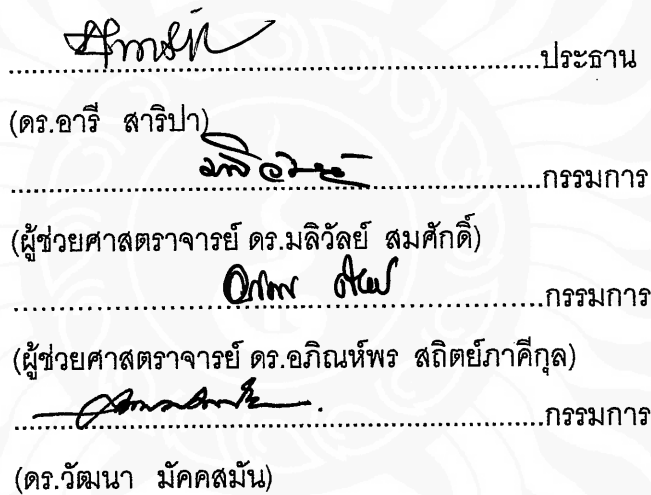 ....................................................................ประธาน
(ดร.อารี สาริปา)
....................................................................กรรมการ
(ผู้ช่วยศาสตราจารย์ ดร.มลิวัลย์ สมศักดิ์)
....................................................................กรรมการ
(ผู้ช่วยศาสตราจารย์ ดร.อภิณห์พร สถิตย์ภาคีกุล)
....................................................................กรรมการ
(ดร.วัฒนา มัคคสมัน)